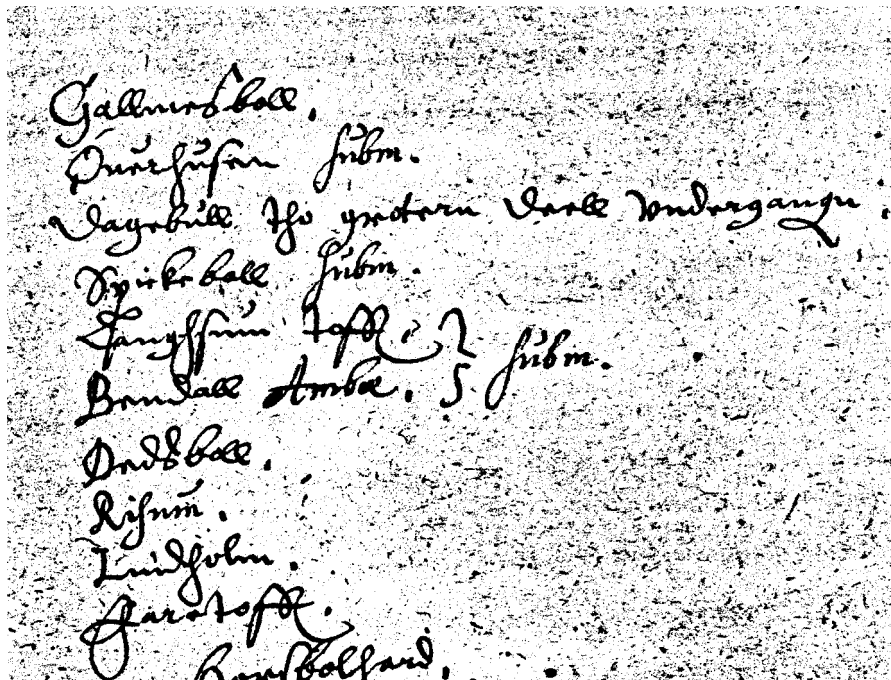 Gallmesboll.
Ouerhusen subm.
Dagebull tho grotern deell vndergangn.
Spiekeboll subm.
Langhsum tofft
Bendall Ambe. } subm.
Dedsboll.
Risum.
Lindholm.
Haretofft.
Horsbolhard,